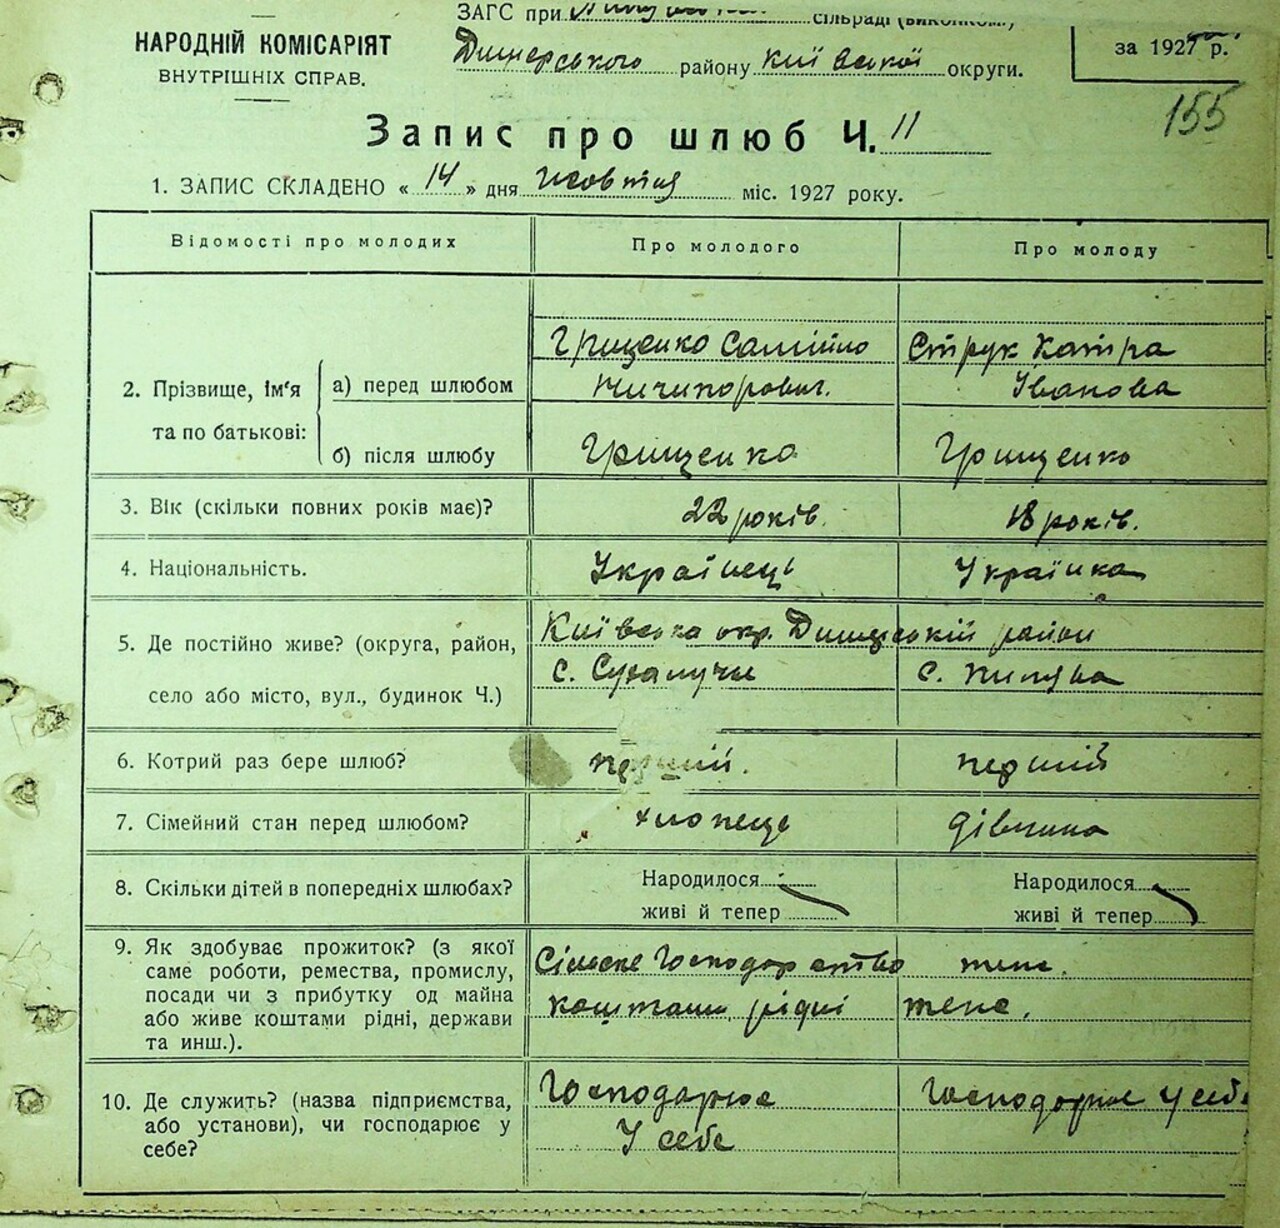 ЗАГС при сільраді (виконком.)
НАРОДНІЙ КОМІСАРІЯТ
ВНУТРІШНІХ СПРАВ.
Димерського району Київської округи.
за 1927 р.
155
Запис про шлюб Ч. 11
1. ЗАПИС СКЛАДЕНО « 14 » дня жовтня міс. 1927 року.
Відомості про молодих
Про молодого
Про молоду
2. Прізвище, ім'я та по батькові:
а) перед шлюбом
Грищенко Самійло
Ничипорович.
Струк Катра
Іванова
б) після шлюбу
Грищенко
Грищенко
3. Вік (скільки повних років має)?
22 років.
18 років.
4. Національність.
Українець
Українка
5. Де постійно живе? (округа, район,
село або місто, вул., будинок Ч.)
Київська окр. Димерський район
с. Сухалучи
с. Пилява
6. Котрий раз бере шлюб?
перший.
перший
7. Сімейний стан перед шлюбом?
хлопець
дівчина
8. Скільки дітей в попередніх шлюбах?
Народилося
живі й тепер
Народилося
живі й тепер
9. Як здобуває прожиток? (з якої
саме роботи, ремества, промислу,
посади чи з прибутку од майна
або живе коштами рідні, держави
та инш.).
Сільске Господарство
коштами рідні
теже.
теже.
10. Де служить? (назва підприємства,
або установи), чи господарює у
себе?
Господарює
У себе
Господарює у себе